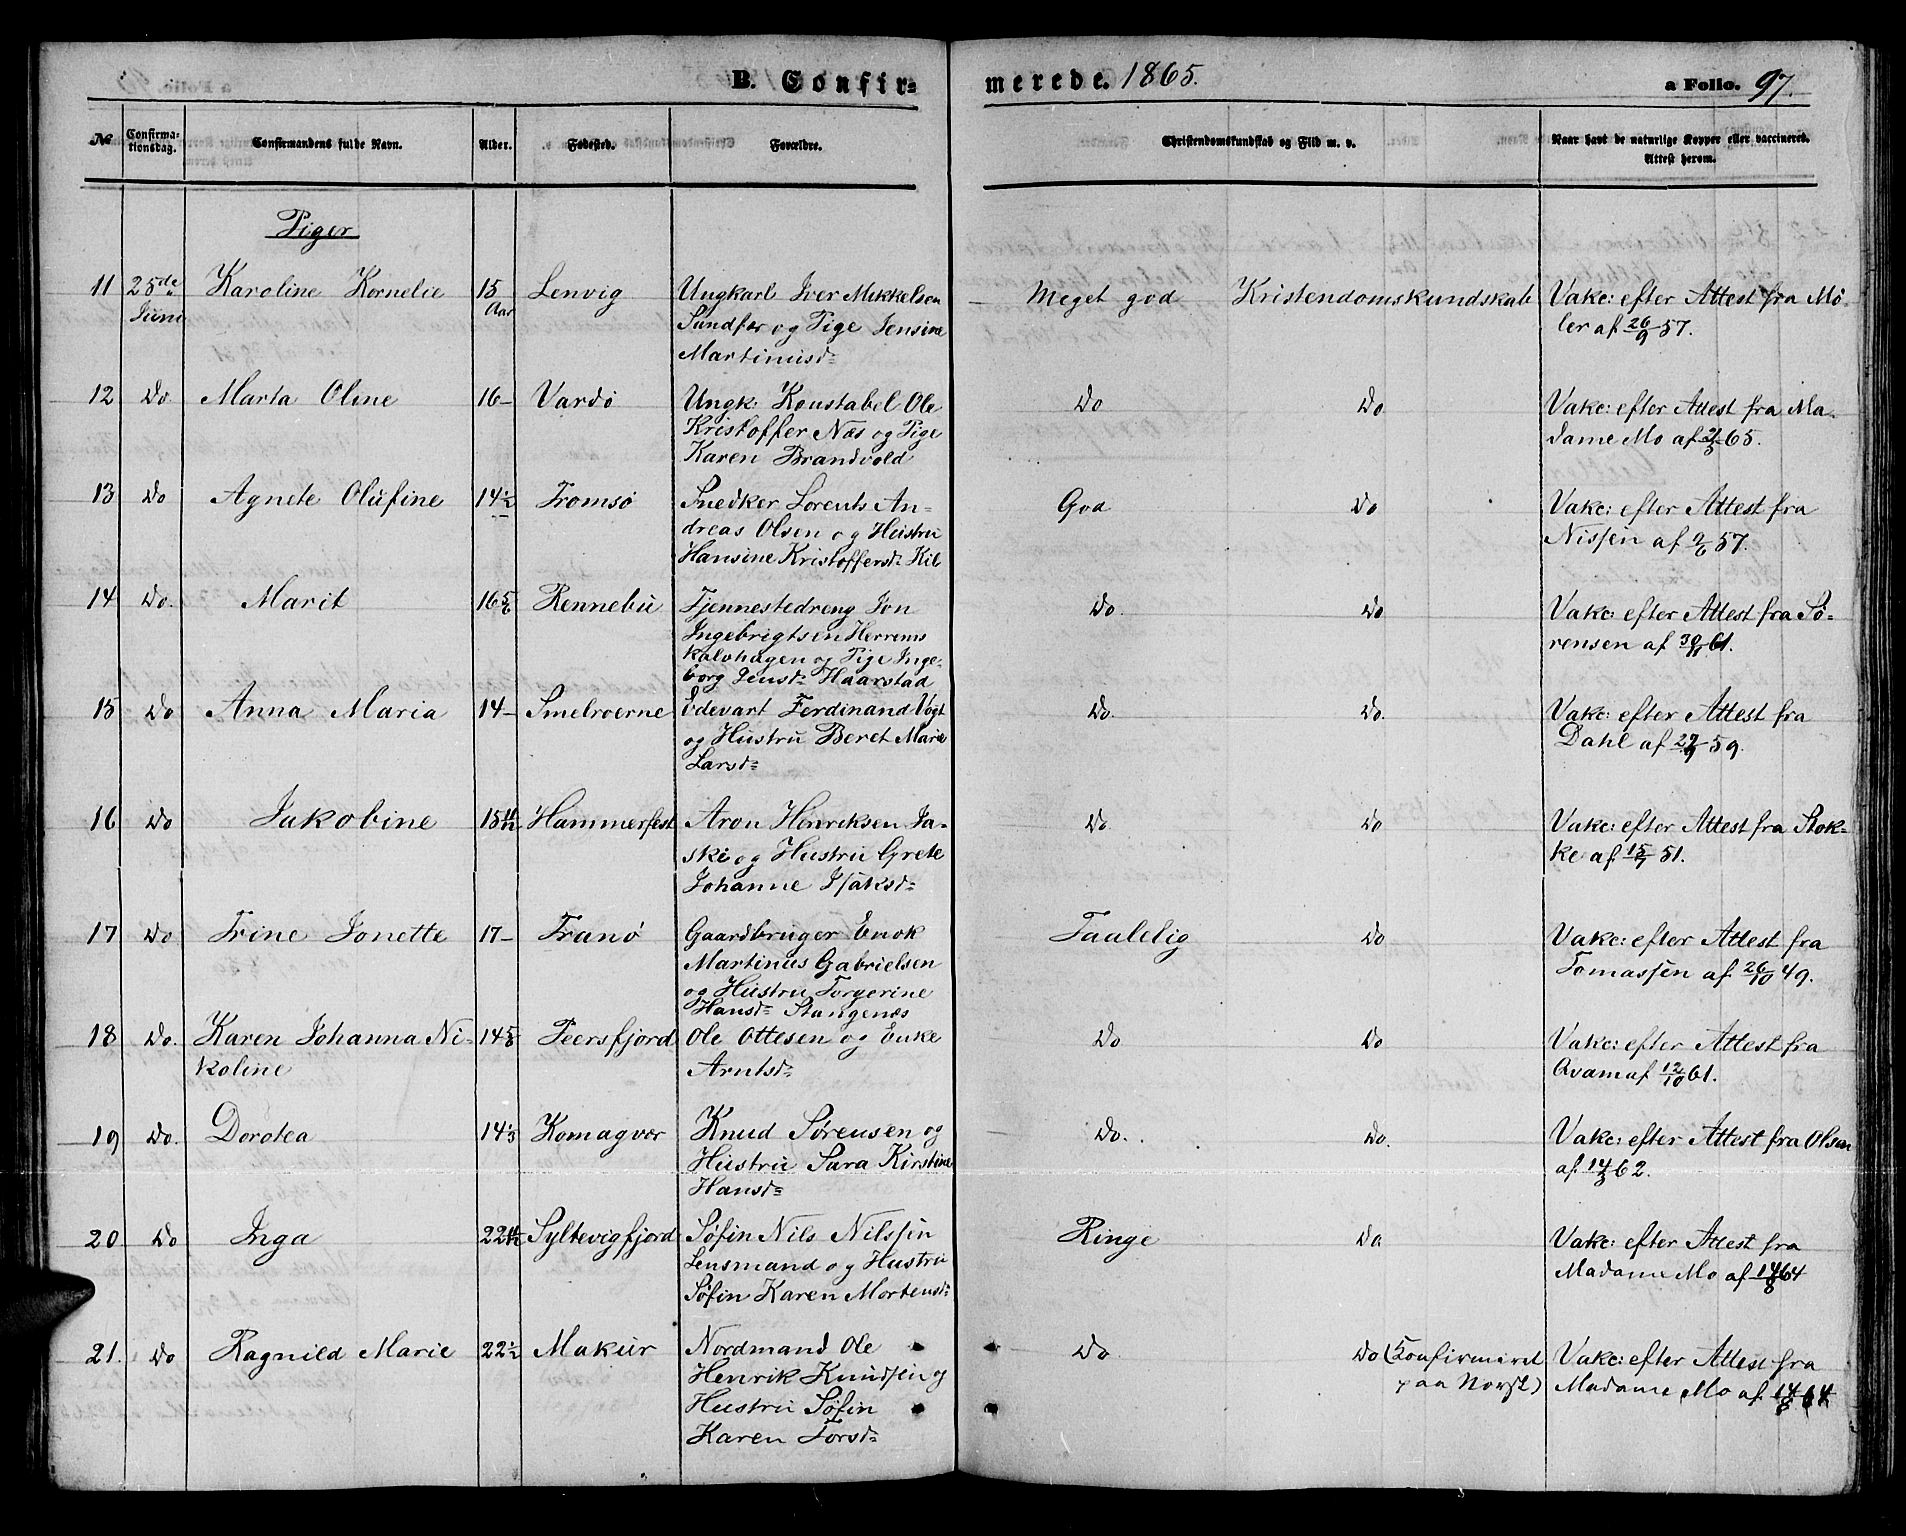 B. Confirmerede. 1865.
a Folio. 97.
№
Confirmationsdag.
Confirmandens fulde Navn.
Alder.
Fødested.
Forældre.
Christendomskundskab og Flid m. v.
Naar havt de naturlige Kopper eller vaccineret.
Attest herom.
Piger
11 25de Karoline Kornelie 15 Lenvig Ungkarl Iver Mikkelsen Meget god Kristendomskundskab Vakc: efter Attest fra Mø-
Juni Aar Sandfær og Pige Jensine ler af 26/9 57.
Martinusd=
12 Do Marta Oline 16- Vardø Ungk: Konstabel Ole Do Do Vakc: efter Attest fra Ma-
Kristoffer Næs og Pige dame Mo af 65.
Karen Brandvold
13 Do Agnete Olufine 14½ Tromsø Snedker Lorents An= God Do Vakc: efter Attest fra
dreas Olsen og Hustru Nissen af 9/6 57.
Hansine Kristoffersd= Kil
14 Do. Marit 16 5/6 Rennebu Tjennestedreng Jon Do. Do Vakc: efter Attest fra Sø-
Ingebrigtsen Herrems rensen af 61.
kalvhagen og Pige Inge-
borg Jensd= Haarstad
15 Do Anna Maria 14- Smelrøerne Edevart Ferdinand Vogt Do. Do. Vakc: efter Attest fra
og Hustru Beret Marie Dahl af 59.
Larsd=
16 Do Jakobine 15 11/12 Hammerfest Aron Henriksen Ja- Do. Do Vakc: efter Attest fra Stok-
ski og Hustru Grete ke af 51.
Johanne Isaksd=
17 Do Trine Jonette 17- Tranø Gaardbruger Enok Taalelig Do Vakc: efter Attest fra
Martinus Gabrielsen Tomassen af 26/10 49.
og Hustru Torgerine
Hansd= Stangenæs
18 Do. Karen Johanna Ni- 14 Peersfjord Ole Ottesen og Enke Do Do Vakc: efter Attest fra
koline Arntsd= Qvam af 12/10 61.
19 Do. Dorotea 14⅓ Komagvær Knud Sørensen og Do. Do. Vakc: efter Attest fra Olsen
Hustru Sara Kirstine af 62.
Hansd=
20 Do Inga 22 11/12 Syltevigfjord Søfin Nils Nilssen Ringe Do Vakc: efter Attest fra
Lensmand og Hustru Madame Mo af 14/8 64
Søfin Karen Mortensd=
21. Do Ragnild Marie 22½ Makur Nordmand Ole Do Do (Konfirmeret Vakc: efter Attest fra
Henrik Knudsen og paa Norsk) Madame Mo af 14/8 64
Hustru Søfin
Karen Torsd=